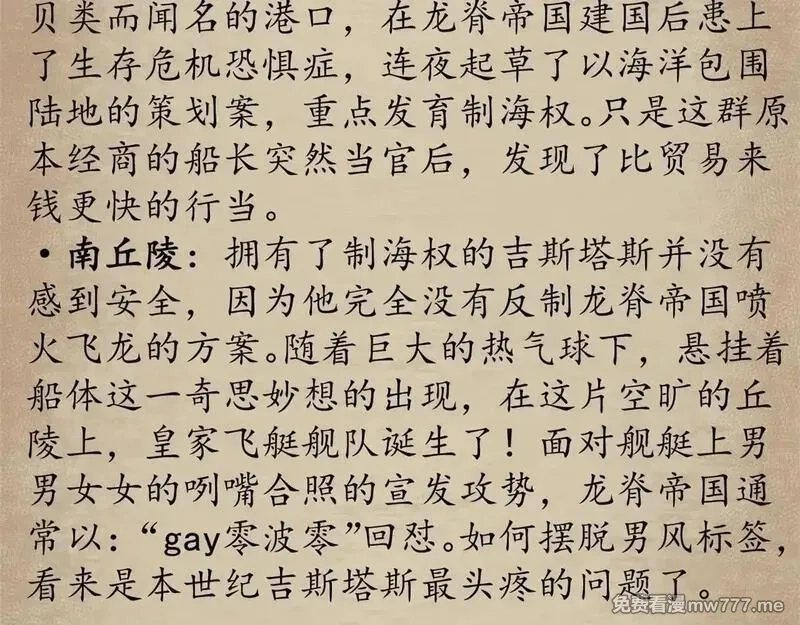 贝类而闻名的港口，在龙脊帝国建国后患上
了生存危机恐惧症，连夜起草了以海洋包围
陆地的策划案，重点发育制海权。只是这群原
本经商的船长突然当官后，发现了比贸易来
钱更快的行当。
·南丘陵：拥有了制海权的吉斯塔斯并没有
感到安全，因为他完全没有反制龙脊帝国喷
火飞龙的方案。随着巨大的热气球下，悬挂着
船体这一奇思妙想的出现，在这片空旷的丘
陵上，皇家飞艇舰队诞生了！面对舰艇上男
男女女的咧嘴合照的宣发攻势，龙脊帝国通
常以：“gay零波零”回怼。如何摆脱男风标签，
看来是本世纪吉斯塔斯最头疼的问题了。
免费看漫mw777.me